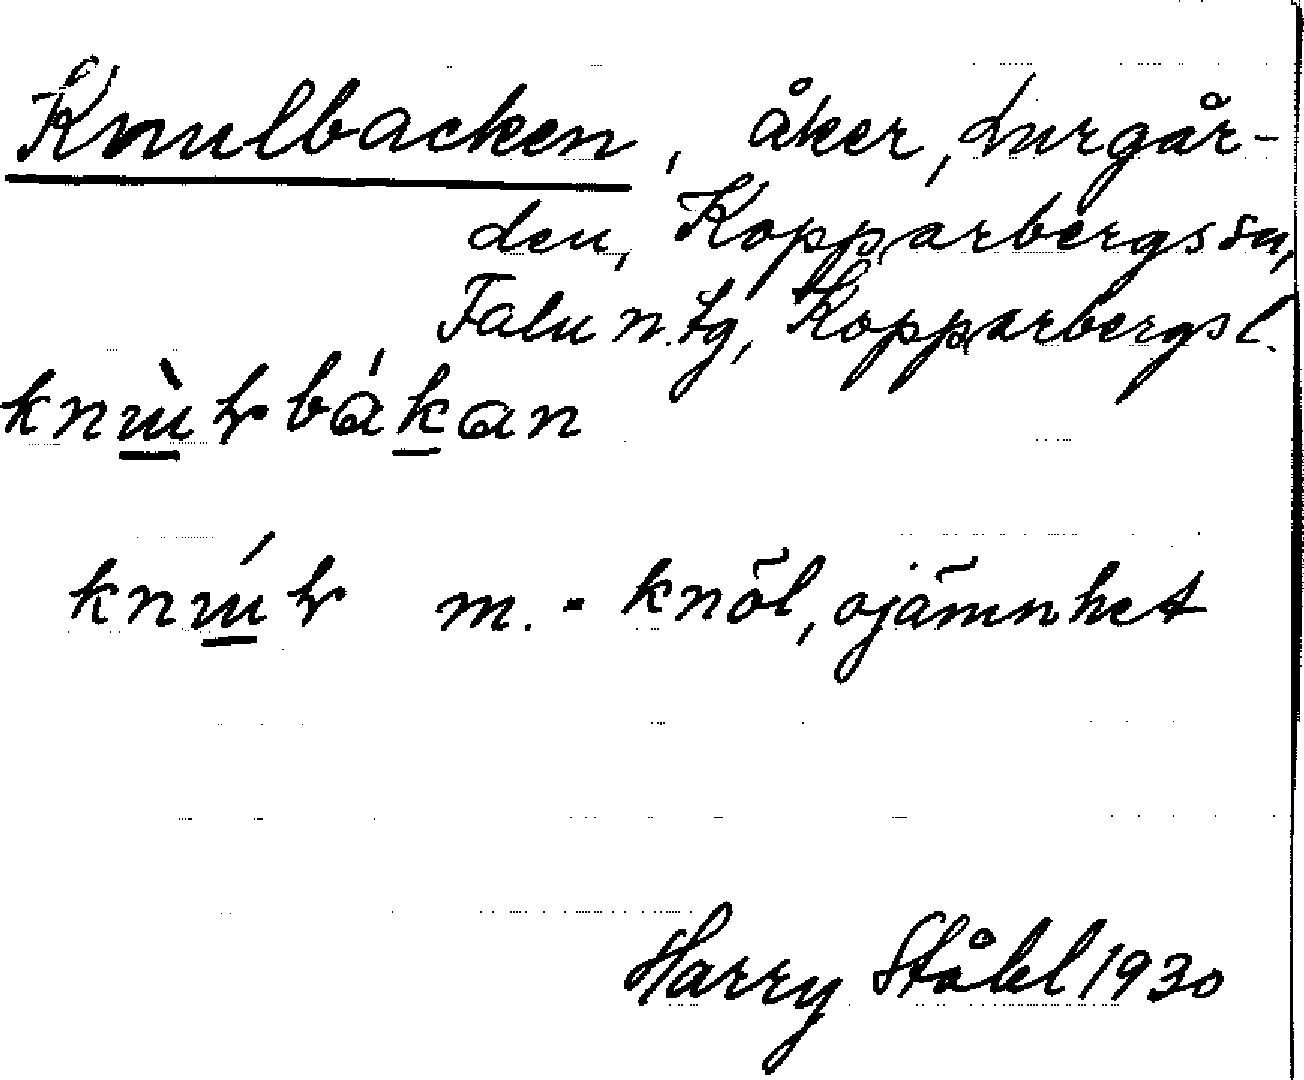 Knulbacken, åker, Lurgår-
den, Kopparbergs sn,
Falu n. tg, Kopparbergs l.
m. - knöl, ojämnhet
Harry Ståhl 1930